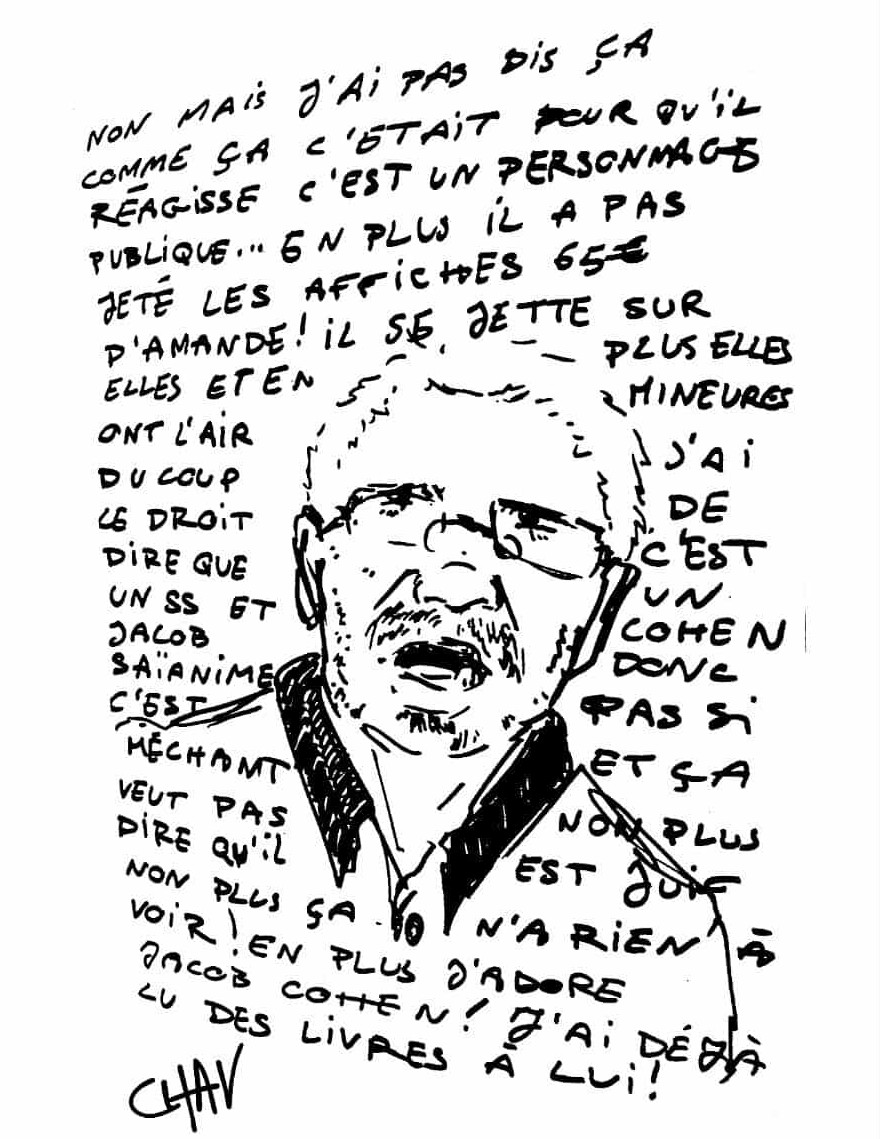 NON MAIS J'AI PAS DIS ÇA
COMME ÇA C'ETAIT POUR QU'IL
RÉAGISSE C'EST UN PERSONNAGE
PUBLIQUE... EN PLUS IL A PAS
JETÉ LES AFFICHES 65€
D'AMANDE! IL SE JETTE SUR
ELLES ET EN PLUS ELLES
ONT L'AIR MINEURES
DU COUP J'AI
LE DROIT DE
DIRE QUE C'EST
UN SS ET UN
JACOB COHEN
SAÏANIME DONC
C'EST PAS SI
MÉCHANT ET ÇA
VEUT PAS NON PLUS
DIRE QU'IL EST JUIF
NON PLUS ÇA N'A RIEN À
VOIR! EN PLUS J'ADORE
JACOB COHEN! J'AI DÉJÀ
LU DES LIVRES À LUI!
CHAV